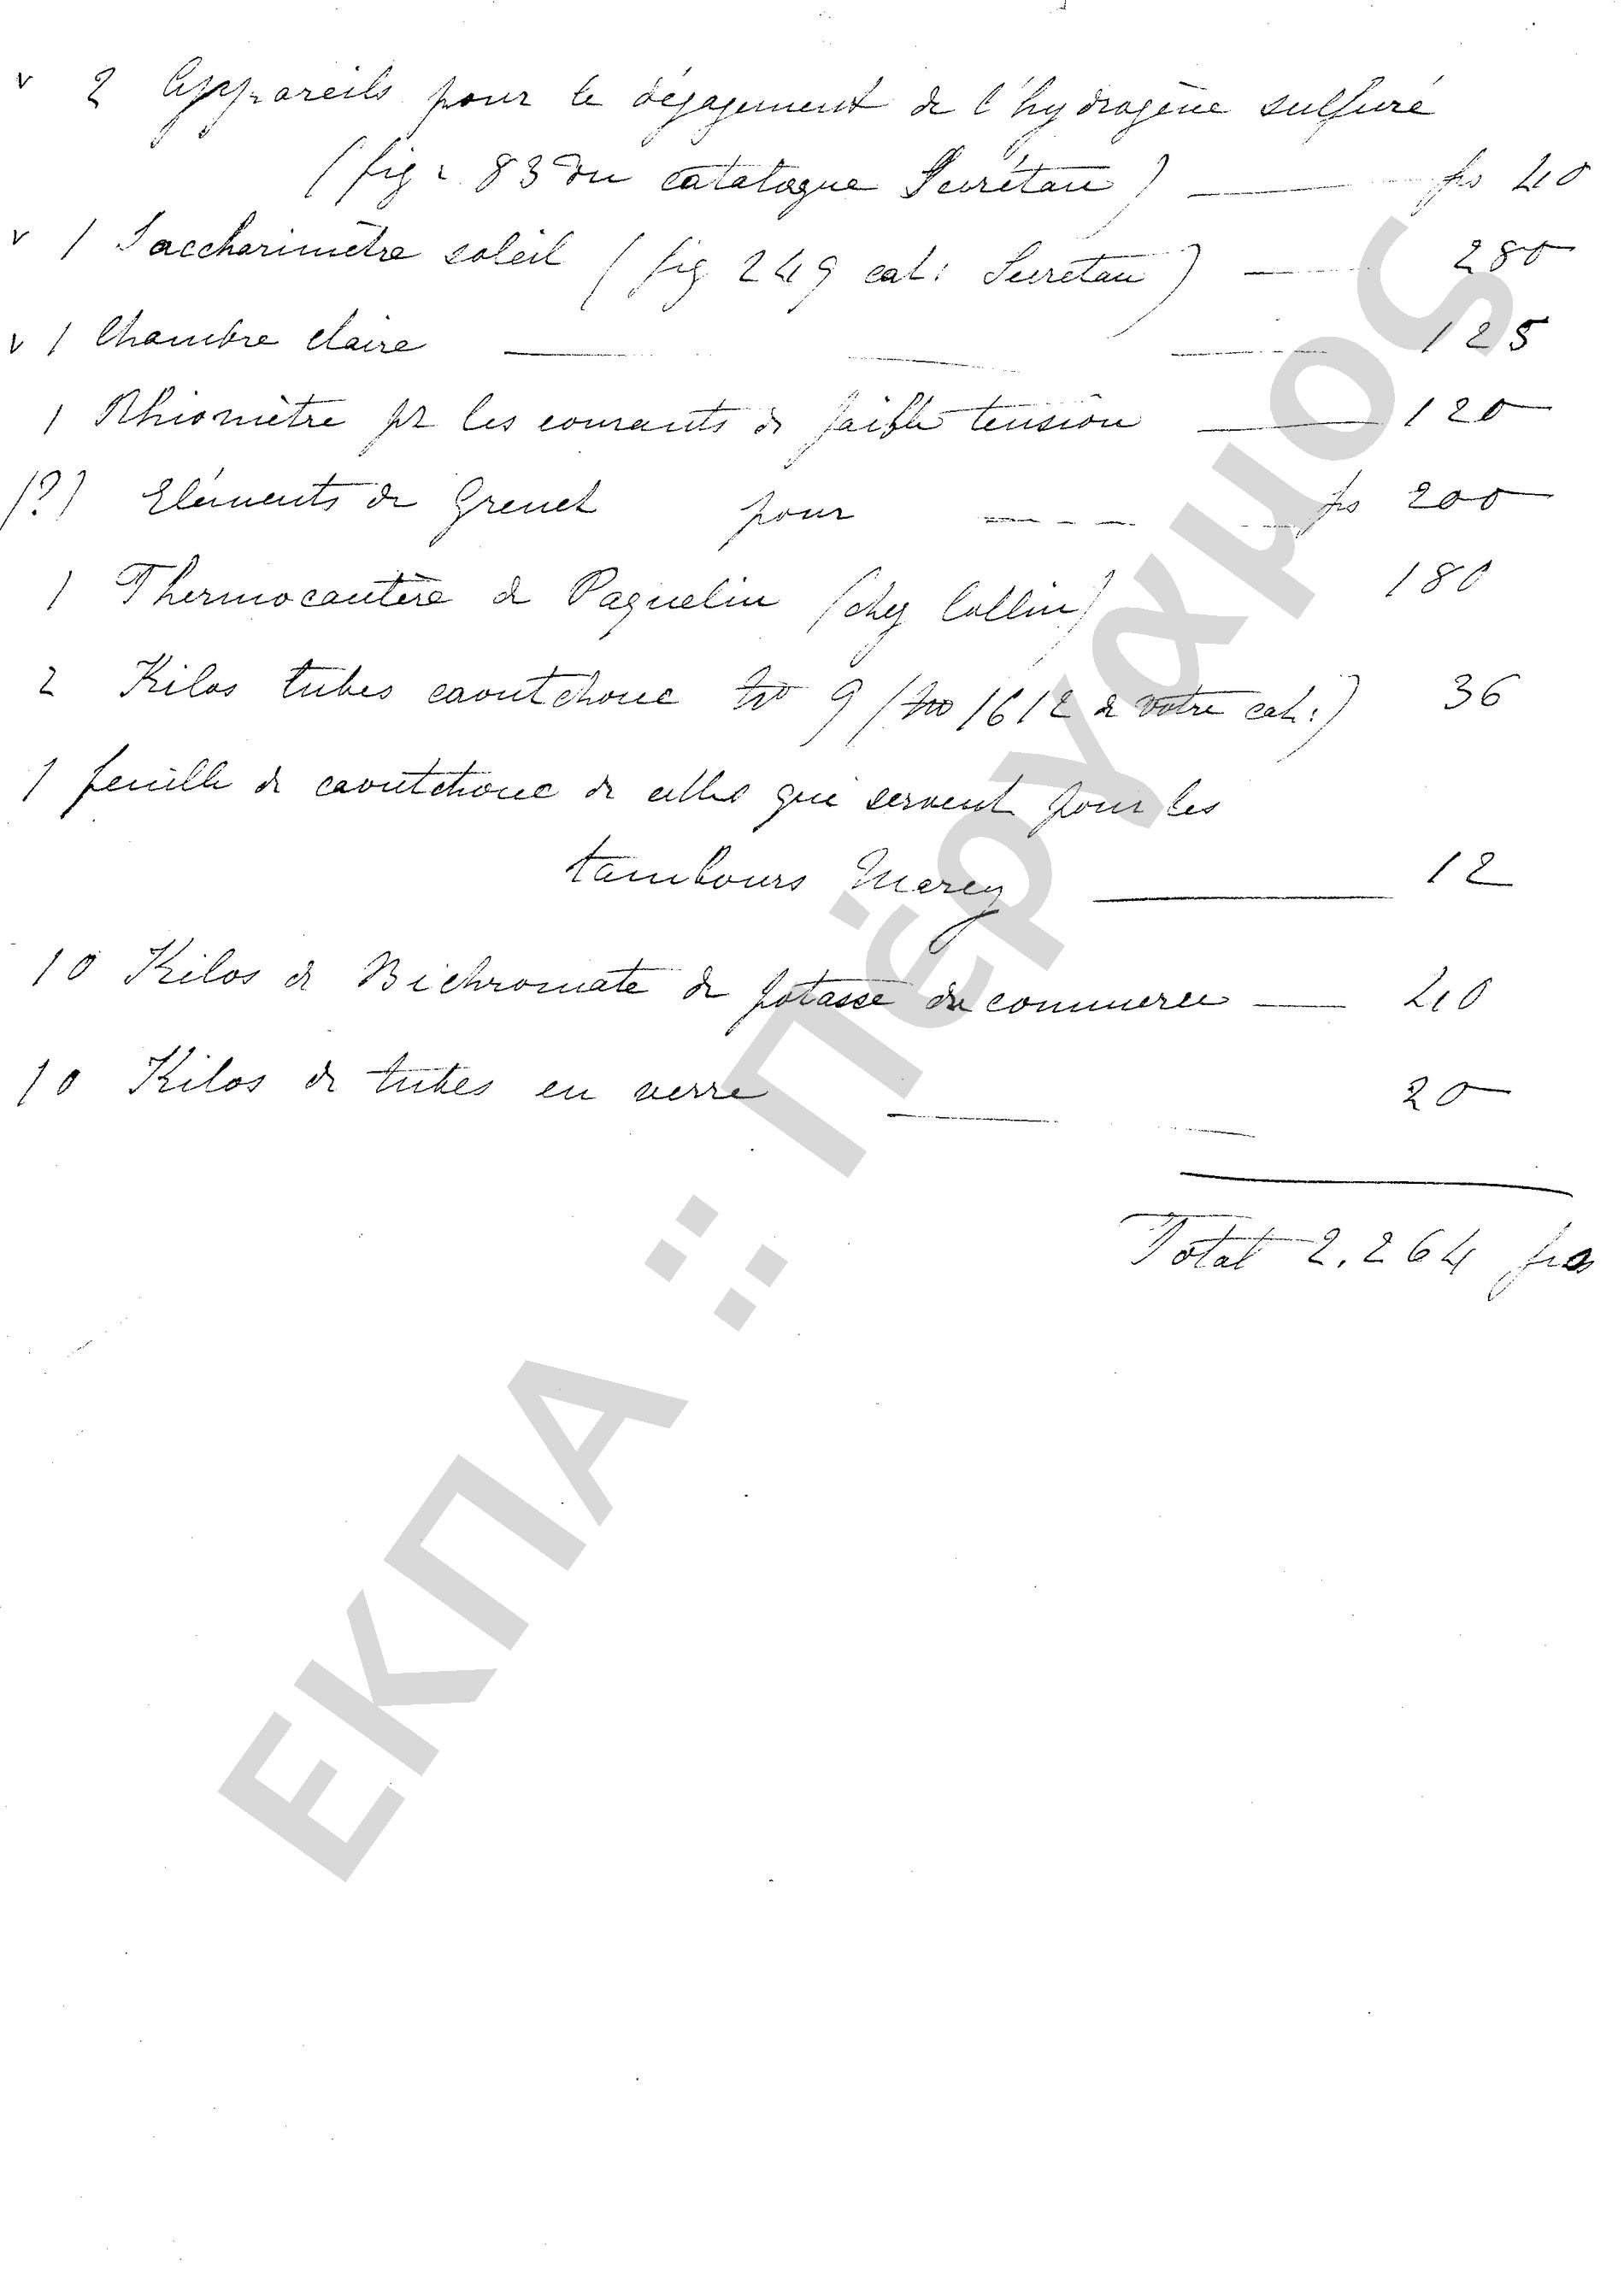 v 2 Appareils pour le dégagement de l'hydrogène sulfuré
(fig: 83 du catalogue Secrétan) frs 40
v 1 Saccharimètre soleil (fig 249 cat: Secrétan) 280
v 1 Chambre claire 125
1 Rhiomètre pr les courants de faible tension 120
(?) Eléments de Grenet pour frs 200
1 Thermocautère de Paquelin (chez Collin) 180
2 Kilos tubes caoutchouc No 9 (No 1612 de votre cat:) 36
1 feuille de caoutchouc de celles qui servent pour les
tambours Marey 12
10 Kilos de Bichromate de potasse du commerce 40
10 Kilos de tubes en verre 20
Total 2.264 frs
ΕΚΠΑ :: Πέργαμος